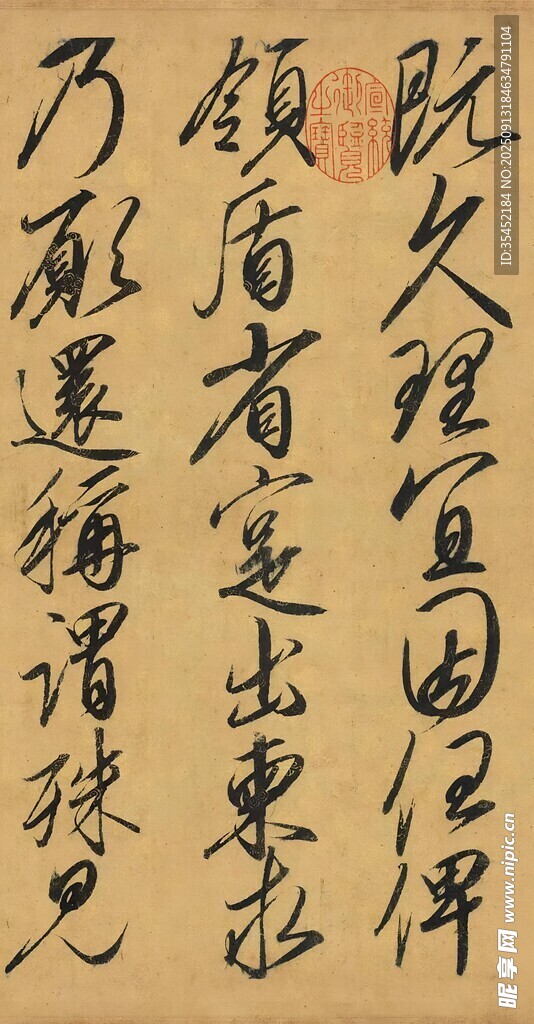 既久理宜因任俾
領盾省寔出柬求
乃願還稱謂殊見
宣統御覽之寶
ID:35452184 NO:20250913184634791104
昵享网 www.nipic.cn